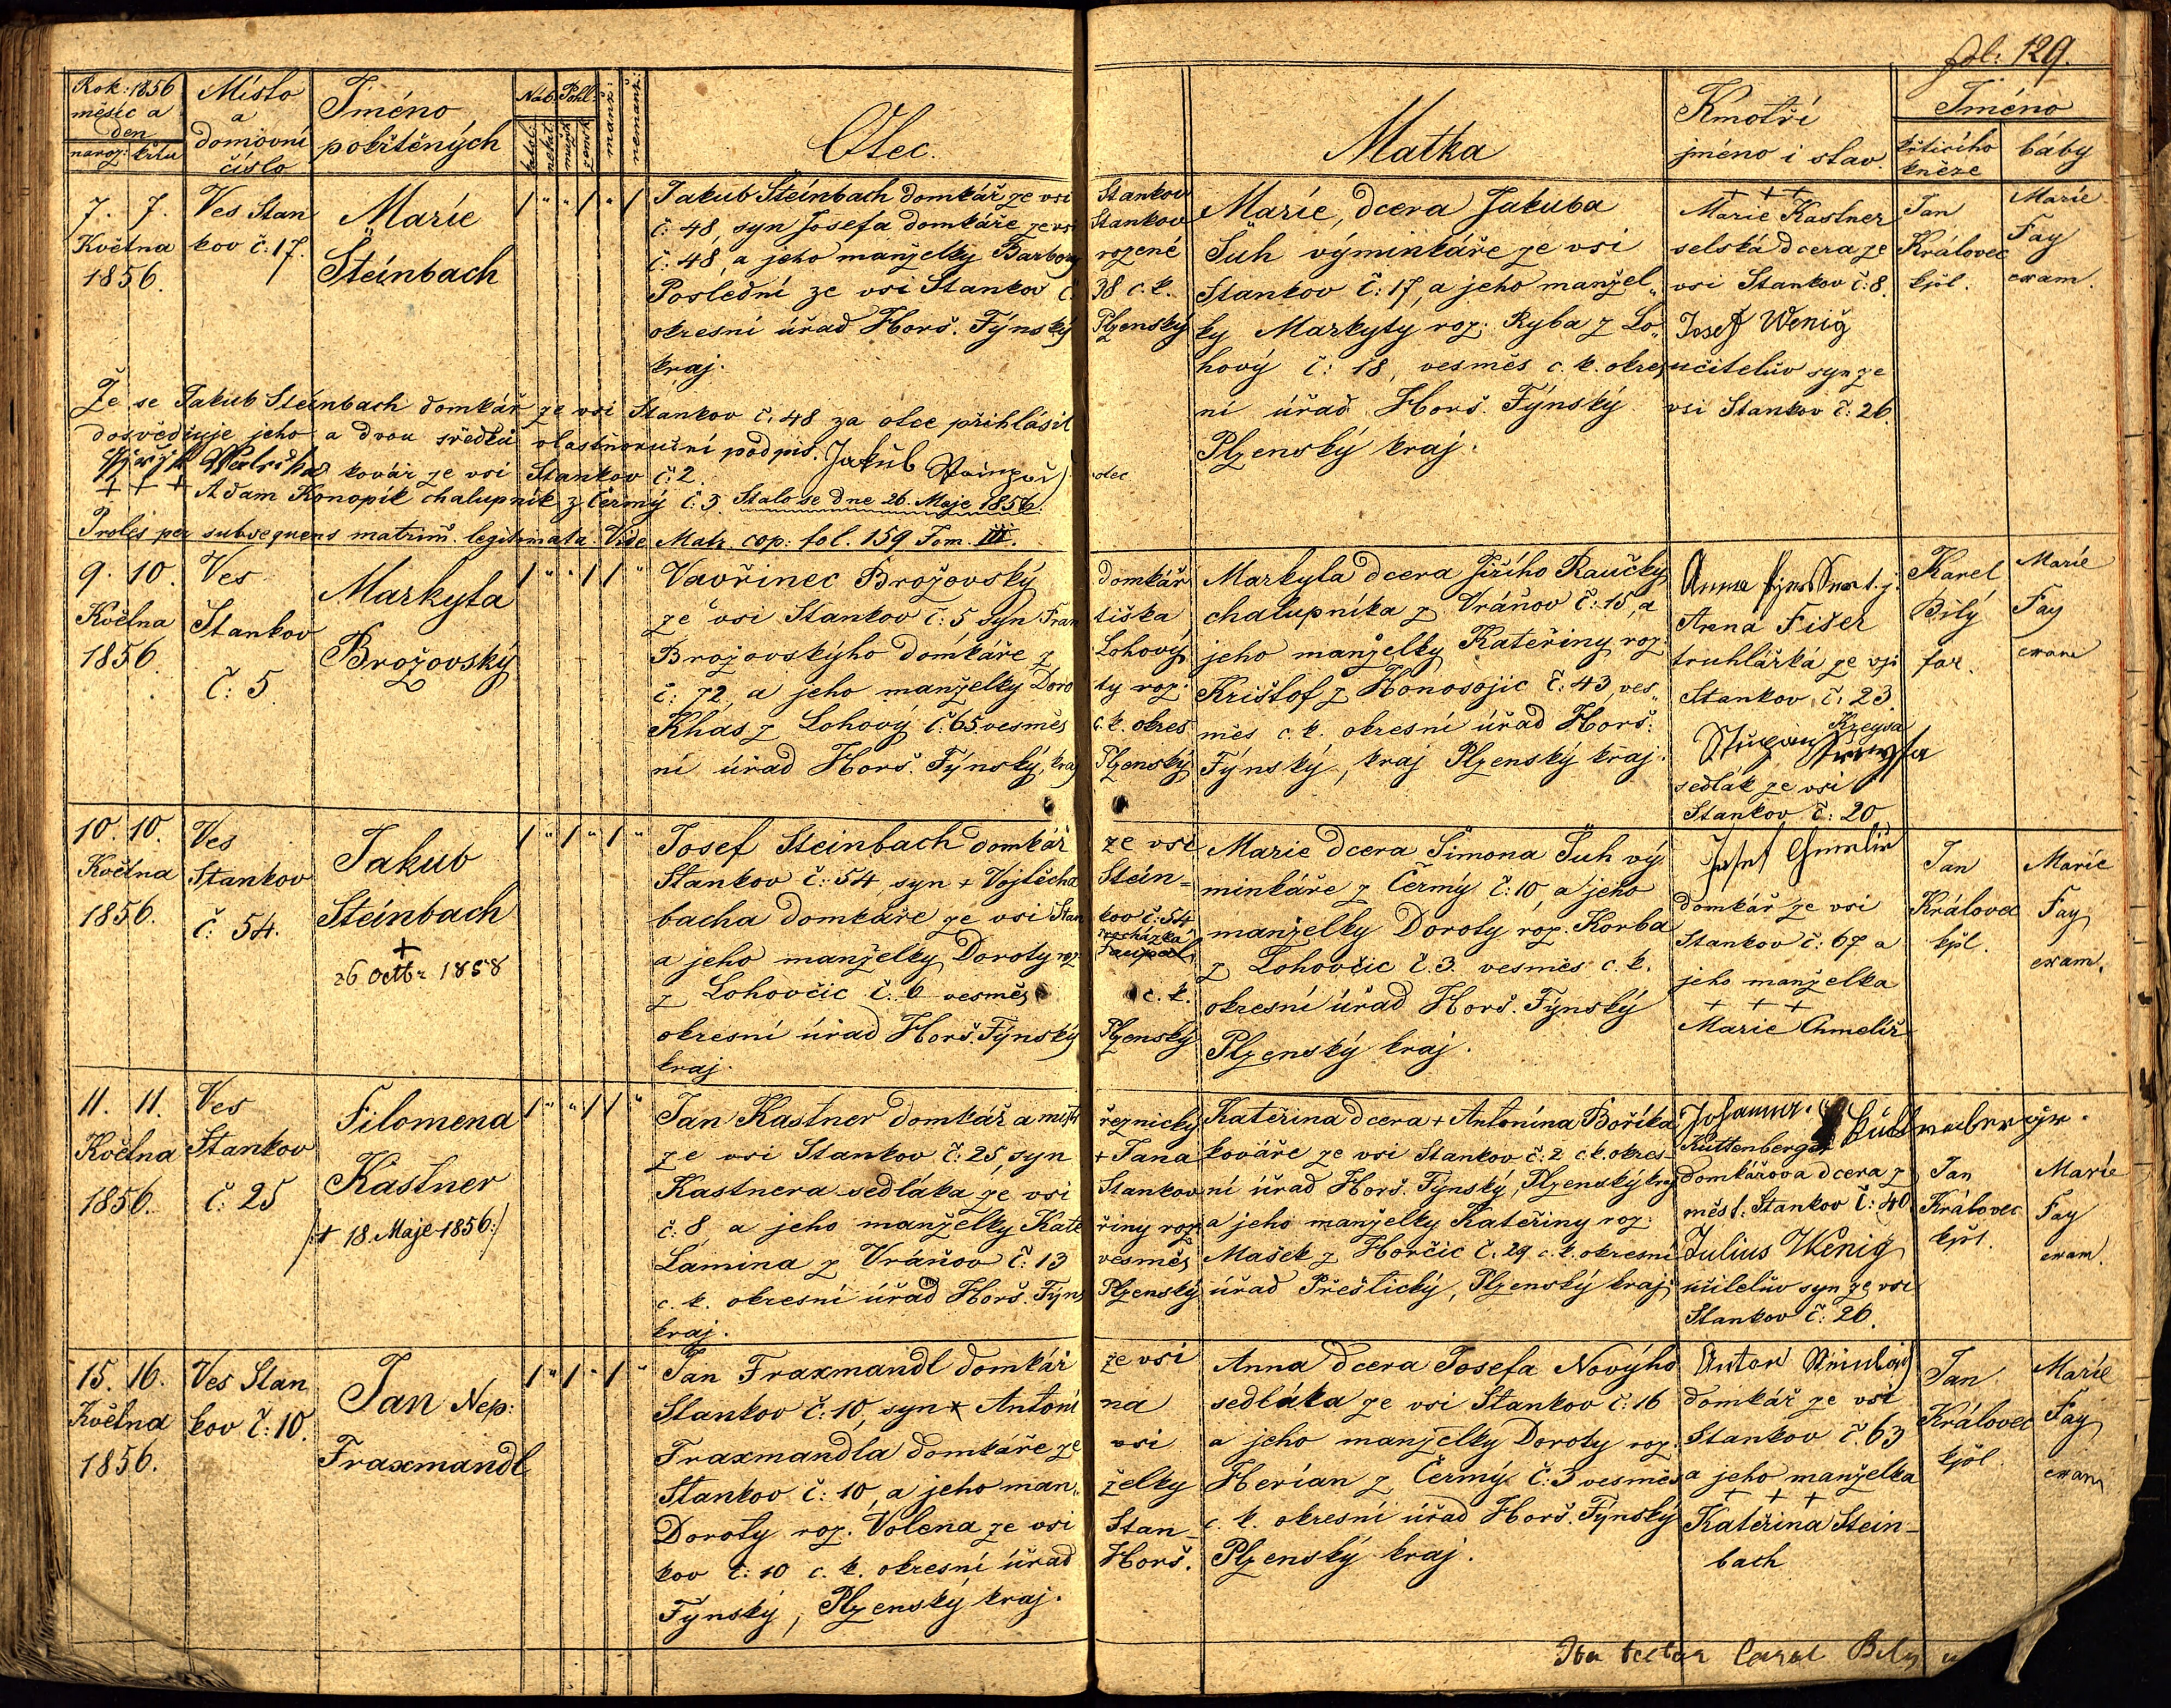 fol: 129.
Rok: 1856
měsíc a
den
naroz: křtu
Místo
a
domovní
číslo
Jméno
pokřtěných
Náb: Pohl:
katol.
nekat.
mužsk
žensk
manž:
nemanž:
Otec.
Matka
Kmotři
jméno i stav.
Jméno
křtícího
kněze
báby
7. 7.
Května
1856.
Ves Stan
kov č: 17.
Marie
Steinbach
Jakub Steinbach domkář ze vsi Stankov
č: 48, syn Josefa domkáře ze vsi Stankov
č: 48, a jeho manželky Barbory rozené
Poslední ze vsi Stankov č. 38 c. k.
okresní úřad Horš. Týnský Plzenský
kraj.
Marie, dcera Jakuba
Šuh výminkáře ze vsi
Stankov č: 17, a jeho manžel„
ky Markyty roz: Ryba z Lo„
hový č: 18, vesměs c. k. okres
ní úřad Horš. Týnský
Plzenský kraj.
+ + +
Marie Kastner
selská dcera ze
vsi Stankov č: 8.
Josef Wenig
učitelův syn ze
vsi Stankov č: 26.
Jan
Královec
kpl.
Marie
Fay
exam.
Že se Jakub Steinbach domkář ze vsi Stankov č: 48 za otce přihlásil
dosvědčuje jeho a dvou svědků vlastnoruční podpis. Jakub otec
kovář ze vsi Stankov č: 2.
+ + + Adam Konopík chalupník z Čermý č: 3. Stalo se dne 26. Maje 1856.
Proles per subsequens matrim. legitimata. Vide Matr. cop: fol. 159 Tom. III.
9. 10.
Května
1856.
Ves
Stankov
č: 5
Markyta
Brožovský
Vavřinec Brožovský domkář
ze vsi Stankov č: 5 syn Fran tiška
Brožovskýho domkáře z Lohový
č: 72, a jeho manželky Doro ty roz:
Khas z Lohový č: 65 vesměs c. k. okres
ní úřad Horš. Týnský, kraj Plzenský
Markyta dcera Jiřího Raučky
chalupníka z Vráňov č: 15, a
jeho manželky Kateřiny roz
Krištof z Honosojic č: 43, ves„
měs c. k. okresní úřad Horš.
Týnský, kraj Plzenský kraj.
Anna
Anna Fišer
truhlářka ze vsi
Stankov č: 23.
Kreysa
sedlák ze vsi
Stankov č: 20
Karel
Bílý
far.
Marie
Fay
exam
10. 10.
Května
1856.
Ves
Stankov
č: 54.
Jakub
Steinbach
+
26 Octbr 1858
Josef Steinbach domkář ze vsi
Stankov č: 54 syn + Vojtěcha Stein=
bacha domkáře ze vsi Stan kov č: 54
a jeho manželky Doroty roz
z Lohovčic č: 6 vesměs c. k.
okresní úřad Horš. Týnský Plzenský
kraj.
Marie dcera Šimona Šuh vý
minkáře z Čermý č: 10, a jeho
manželky Doroty roz. Korba
z Lohovčic č. 3. vesměs c. k.
okresní úřad Horš. Týnský
Plzenský kraj.
Josef
domkář ze vsi
Stankov č: 67 a
jeho manželka
+ + +
Marie Chmelíř
Jan
Královec
kpl.
Marie
Fay
exam.
11. 11.
Května
1856.
Ves
Stankov
č: 25
Filomena
Kastner
/: + 18. Maje 1856:/
Jan Kastner domkář a mistr řeznický
ze vsi Stankov č: 25, syn + Jana
Kastnera sedláka ze vsi Stankov
č: 8, a jeho manželky Kate řiny roz
Lamina z Vráňov č: 13 vesměs
c. k. okresní úřad Horš. Týns Plzenský
kraj.
Kateřina dcera + Antonína Boříka
kováře ze vsi Stankov č: 2 c. k. okres=
ní úřad Horš. Týnský, Plzenský kraj
a jeho manželky Kateřiny roz:
Mašek z Horčic č. 29 c. k. okresní
úřad Přeštický, Plzenský kraj.
Johanna
Kuttenberger
domkářova dcera z
měst. Stankov č: 40
Julius Wenig
učitelův syn ze vsi
Stankov č: 26.
Jan
Královec
kpl.
Marie
Fay
exam.
15. 16.
Května
1856.
Ves Stan
kov č: 10.
Jan Nep:
Fraxmandl
Jan Fraxmandl domkář ze vsi
Stankov č: 10, syn Antoní na
Fraxmandla domkáře ze vsi
Stankov č: 10, a jeho man„ želky
Doroty roz. Volena ze vsi Stan=
kov č: 10 c. k. okresní úřad Horš.
Týnský, Plzenský kraj.
Anna dcera Josefa Novýho
sedláka ze vsi Stankov č: 16
a jeho manželky Doroty roz.
Herian z Čermý č: 3 vesměs
c. k. okresní úřad Horš. Týnský
Plzenský kraj.
Anton
domkář ze vsi
Stankov č. 63
a jeho manželka
+ + +
Kateřina Stein=
bach
Jan
Královec
kpl.
Marie
Fay
exam
Ita testor Carol Bily